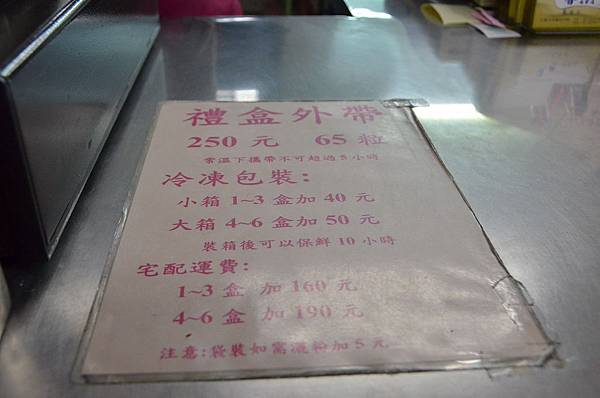 禮盒外帶
250 元 65 粒
常溫下攜帶不可超過 8 小時
冷凍包裝:
小箱 1~3 盒加 40 元
大箱 4~6 盒加 50 元
裝箱後可以保鮮 10 小時
宅配運費:
1~3 盒 加 160 元
4~6 盒 加 190 元
注意:袋裝如需灑粉加 5 元